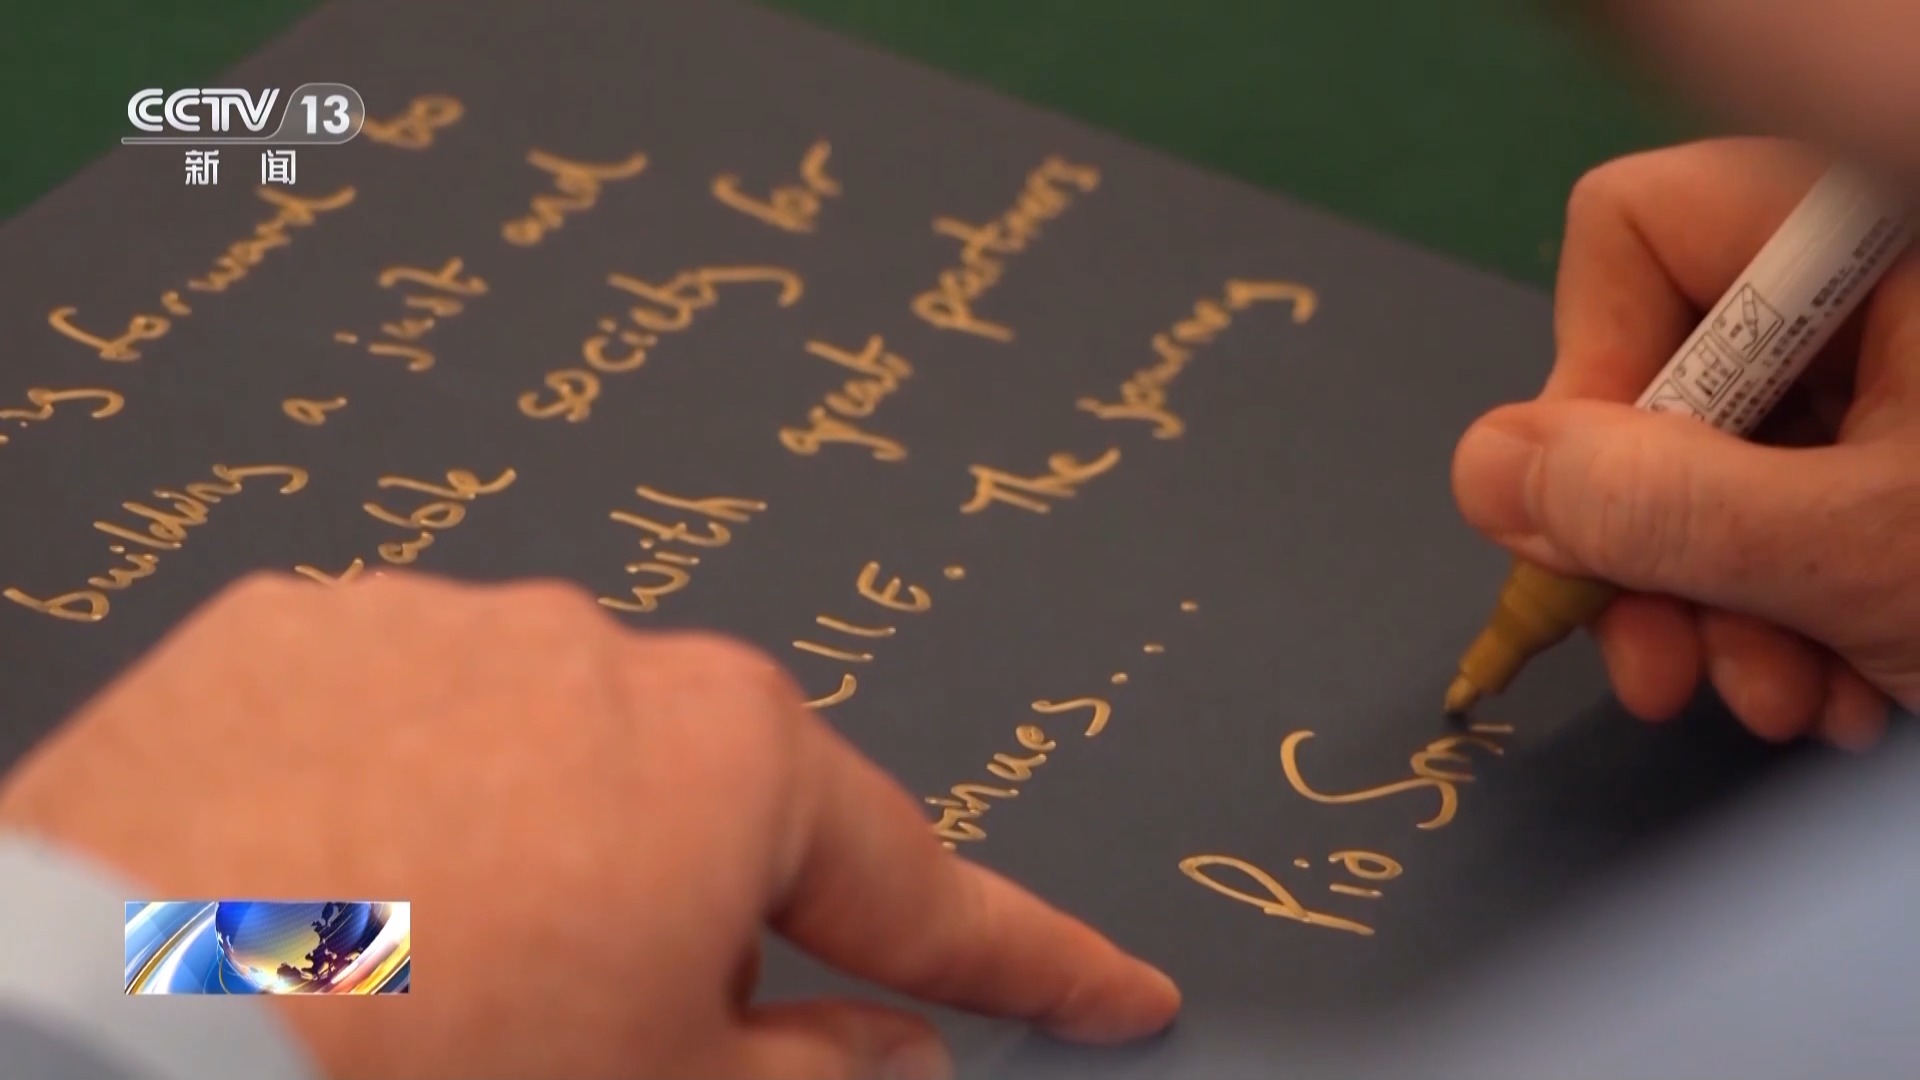 CCTV 13
新闻
forward to
building a just and
society for
with great partners
CIIE. The journey
nues....
Pio Sm